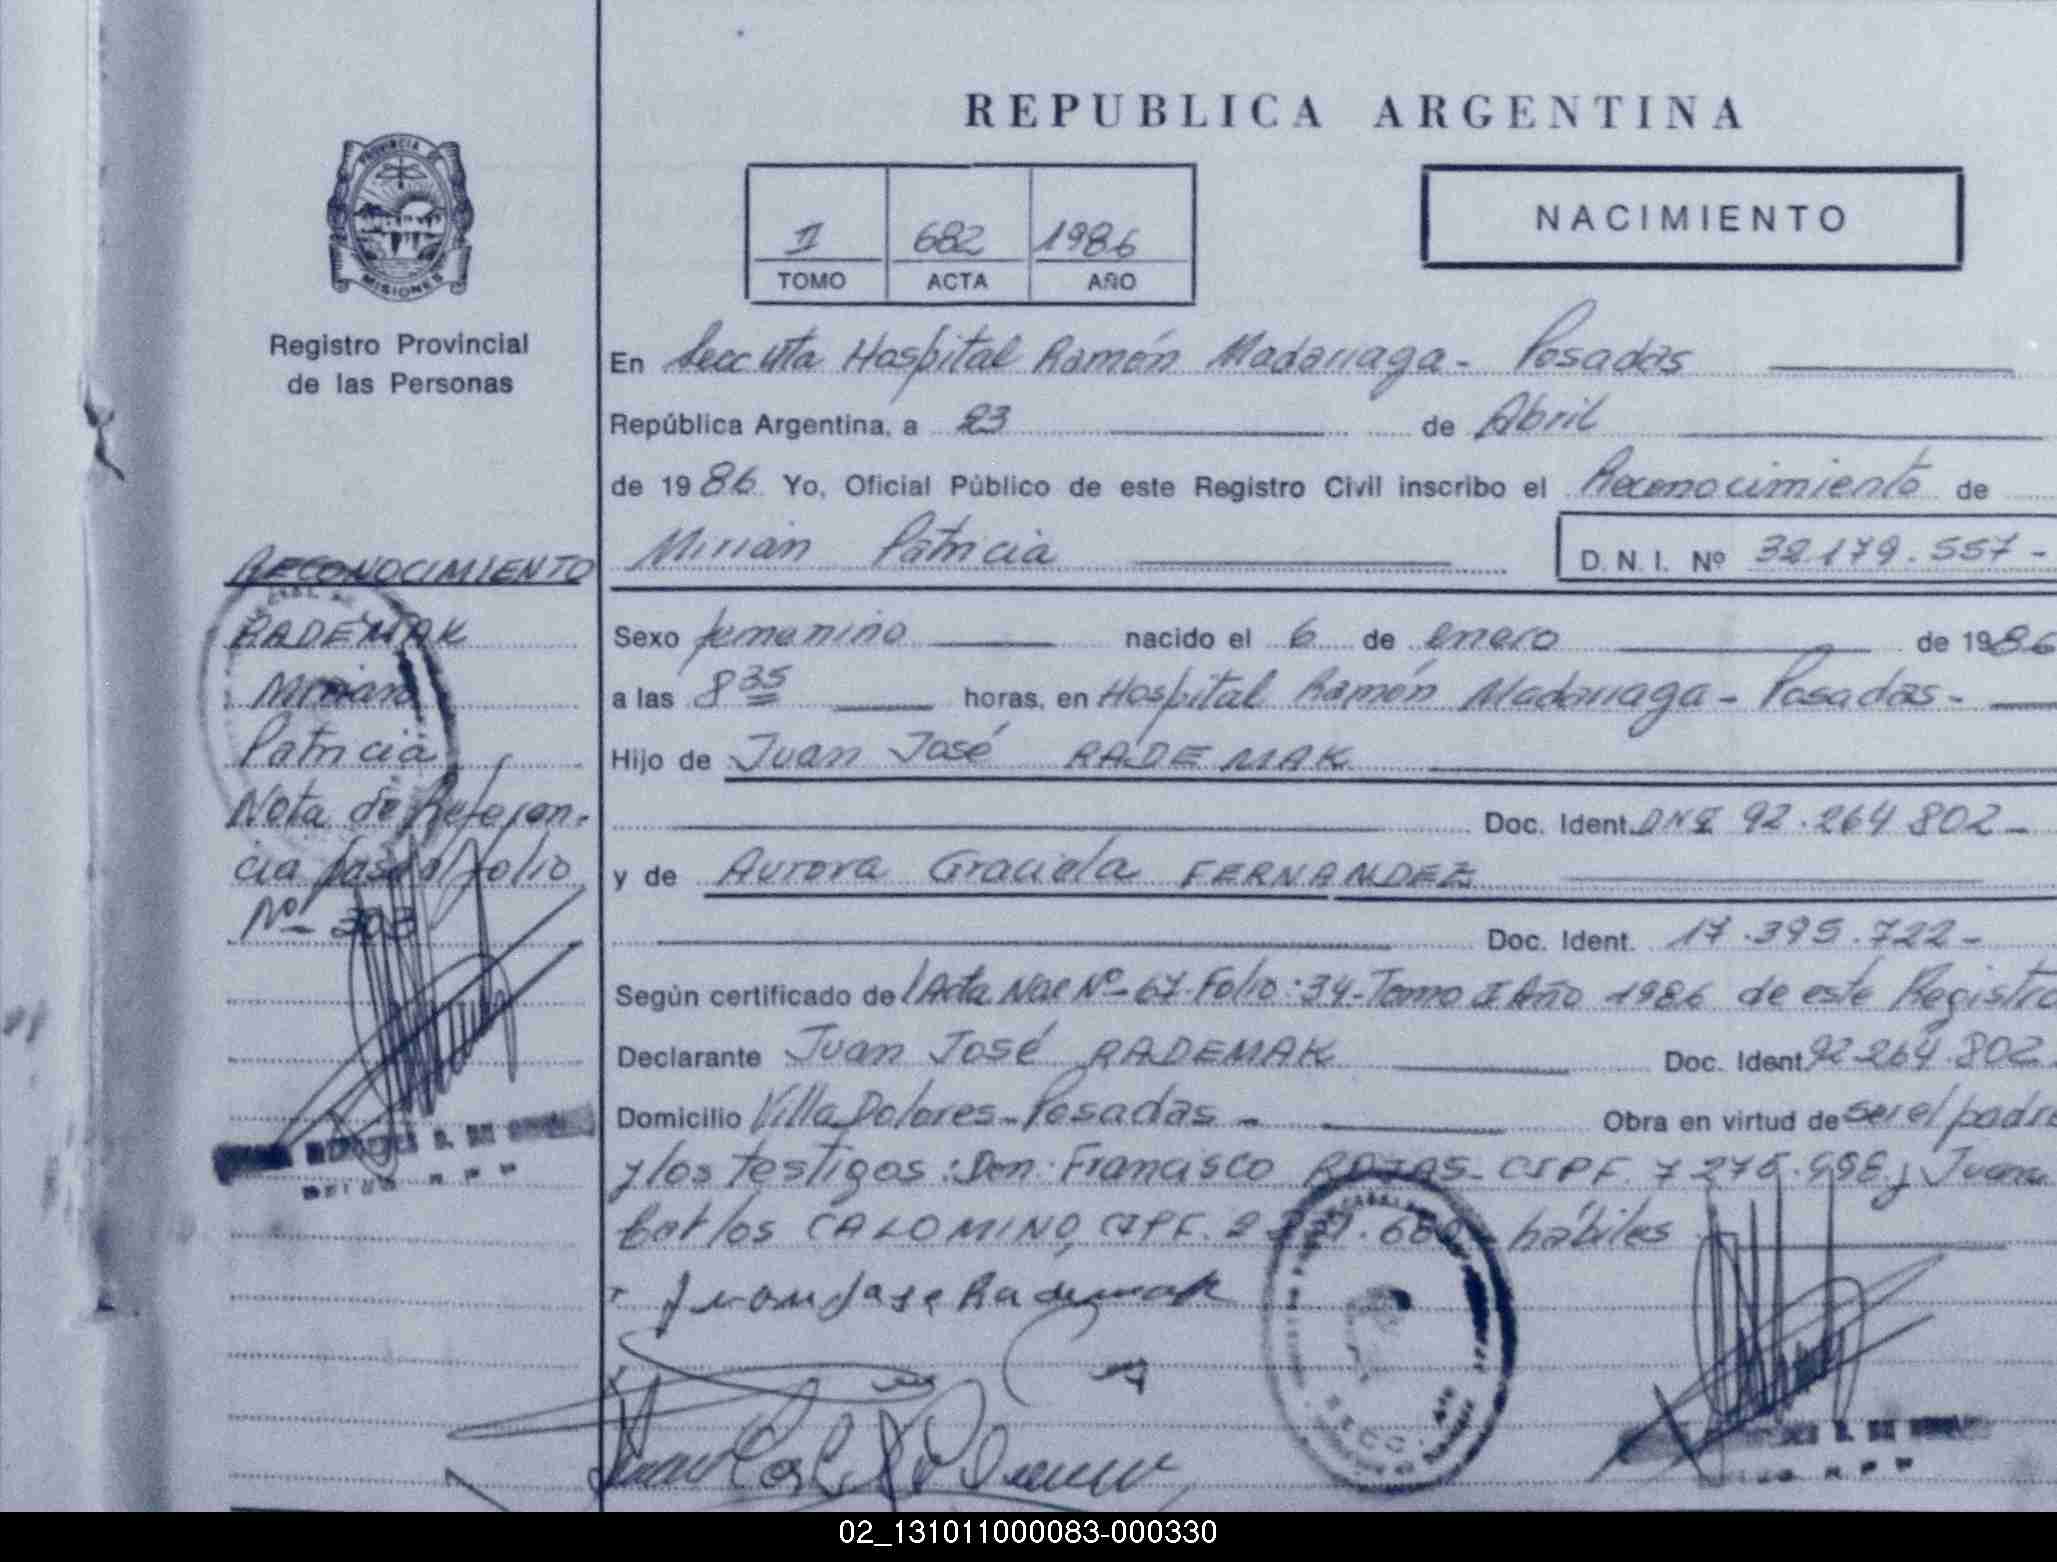 REPUBLICA ARGENTINA
PROVINCIA DE
MISIONES
Registro Provincial
de las Personas
I 682 1986
TOMO ACTA AÑO
NACIMIENTO
En Secc. 4ta Hospital Ramón Madariaga - Posadas
República Argentina, a 23 de Abril
de 1986 Yo, Oficial Público de este Registro Civil inscribo el Reconocimiento de
Mirian Patricia
D. N. I. Nº 32179.557-
Sexo femenino nacido el 6 de enero de 1986
a las 8 35 horas, en Hospital Ramón Madariaga - Posadas -
Hijo de Juan José RADEMAK
Doc. Ident. DNI 92.264 802-
y de Aurora Graciela FERNANDEZ
Doc. Ident. 17.395.722-
Según certificado de Acta Nac Nº-67-Folio:34-Tomo I Año 1986 de este Registro
Declarante Juan José RADEMAK Doc. Ident 92264.802
Domicilio Villa Dolores - Posadas - Obra en virtud de ser el padre
y los testigos: Don: Francisco ROJAS - CIPF. y Juan
Carlos CALOMINO, CIPF. hábiles
Juan Jose Rademak
RECONOCIMIENTO
RADEMAK
Mirian
Patricia
Nota de Referen-
cia pase al folio
Nº 303
02_131011000083-000330